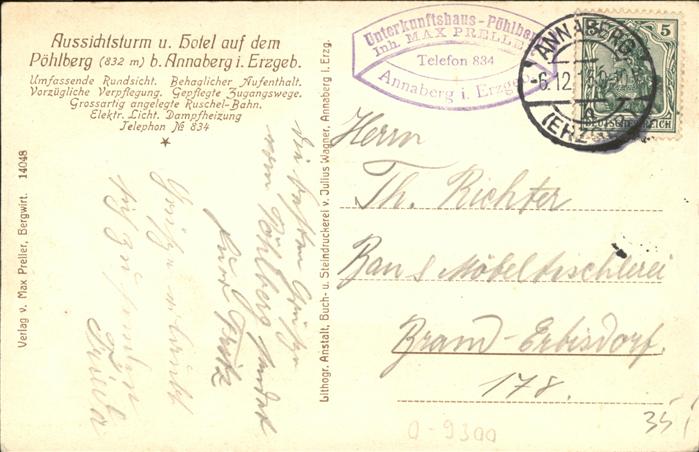 Aussichtsturm u. Hotel auf dem
Pöhlberg (832 m) b. Annaberg i. Erzgeb.
Umfassende Rundsicht. Behaglicher Aufenthalt.
Vorzügliche Verpflegung. Gepflegte Zugangswege.
Grossartig angelegte Ruschel-Bahn.
Elektr. Licht. Dampfheizung
Telephon № 834
Verlag v. Max Preller, Bergwirt. 14048
Die besten Grüße
vom Pöhlberg sendet
Fritz
Lithogr. Anstalt, Buch- u. Steindruckerei v. Julius Wagner, Annaberg i. Erzg.
Unterkunftshaus-Pöhlberg
Inh. MAX PRELLER
Telefon 834
Annaberg i. Erzgeb.
ANNABERG
-6.12.
(ERZGEB.)
5
DEUTSCHES REICH
Herrn
Th. Richter
Bau & Möbeltischlerei
Brand-Erbisdorf.
178.
0-9300
35